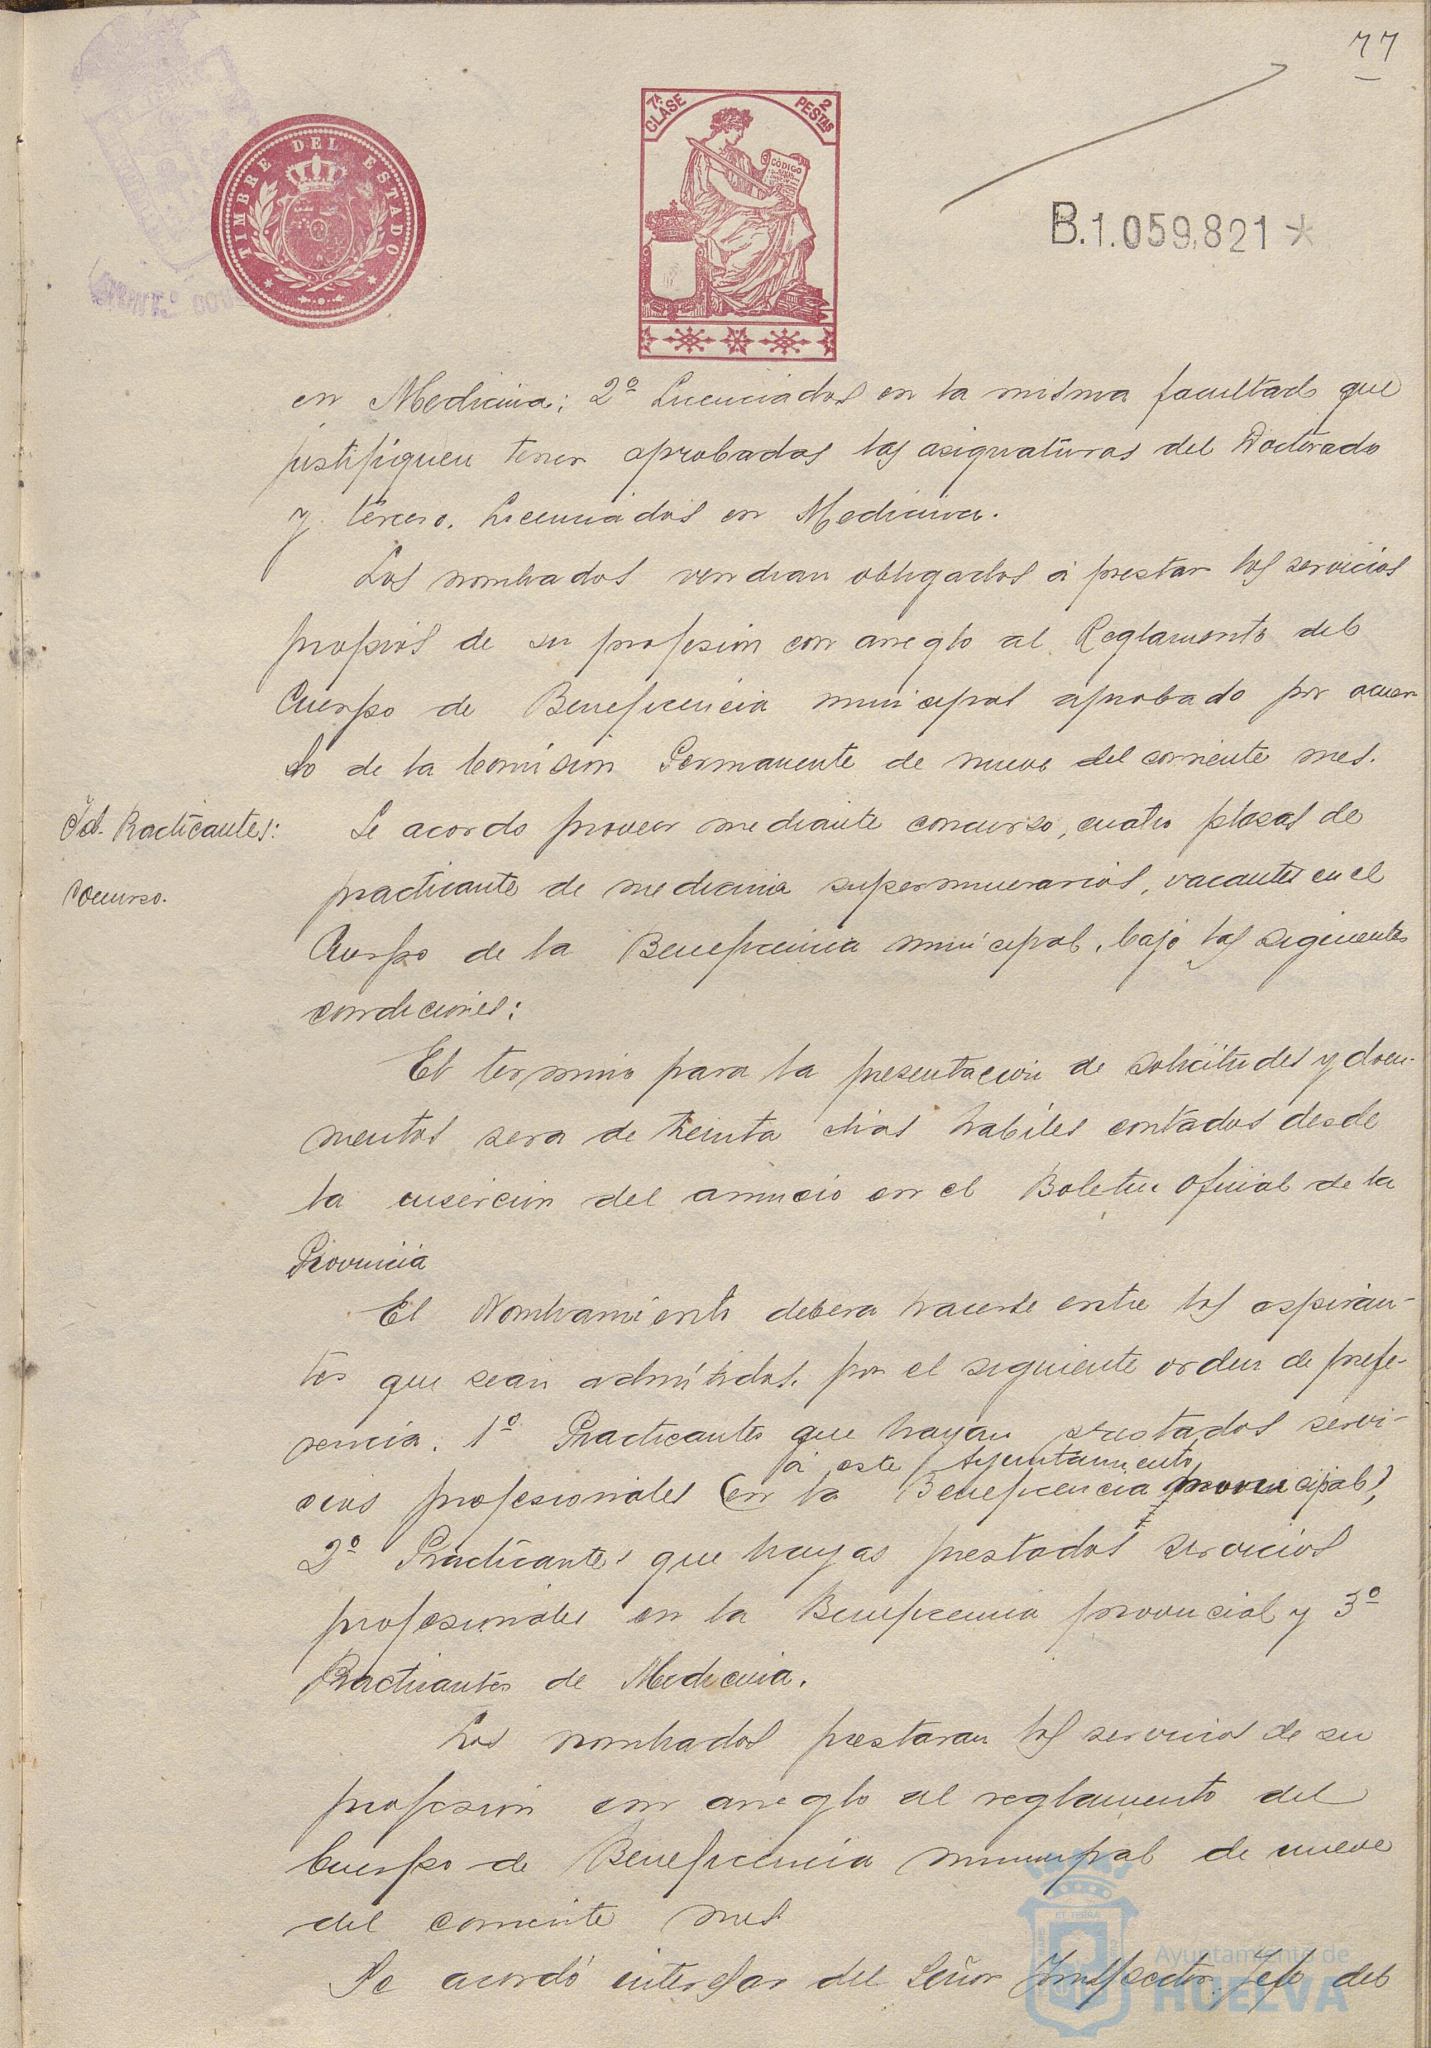 77
TIMBRE DEL ESTADO
7ª CLASE
2 PESTAS
CÓDIGO
B.1.059,821*
en Medicina; 2º Licenciados en la misma facultad que
justifiquen tener aprobadas las asignaturas del Doctorado
y tercero. Licenciados en Medicina.
Los nombrados vendran obligados á prestar los servicios
propios de su profesión con arreglo al Reglamento del
Cuerpo de Beneficencia municipal aprobado por acuer
do de la Comisión Permanente de nueve del corriente mes.
Id. Practicantes:
Cocurso.
Se acordo proveer mediante concurso, cuatro plazas de
practicante de medicina supernumerarios, vacantes en el
Cuerpo de la Beneficencia municipal, bajo las siguientes
condiciones:
El termino para la presentación de solicitudes y docu-
mentos sera de treinta dias habiles contados desde
la inserción del anuncio en el Boletin Oficial de la
Provincia
El Nombramiento debera hacerse entre los aspiran-
tes que sean admitidos, por el siguiente orden de prefe-
rencia. 1º Practicantes que hayan prestados servi-
á este Ayuntamiento
cios profesionales (en la Beneficencia provincipal)
2º Practicantes que hayas prestados servicios
profesionales en la Beneficencia provincial y 3º
Practicantes de Medicina.
Los nombrados prestaran los servicios de su
profesión con arreglo al reglamento del
Cuerpo de Beneficencia municipal de nueve
del corriente mes
Se acordó interesar del Señor Inspector Jefe del
Ayuntamiento de
HUELVA